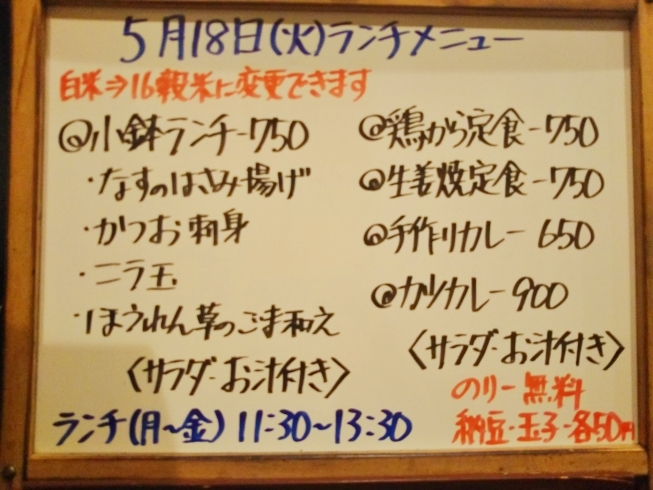 5月18日(火)ランチメニュー
白米⇒16穀米に変更できます
@小鉢ランチ-750
・なすのはさみ揚げ
・かつお刺身
・ニラ玉
・ほうれん草のごま和え
〈サラダ・お汁付き〉
@鶏から定食-750
@生姜焼定食-750
@手作りカレー 650
@カツカレー900
〈サラダ・お汁付き〉
のり-無料
納豆・玉子-各50円
ランチ(月~金) 11:30~13:30